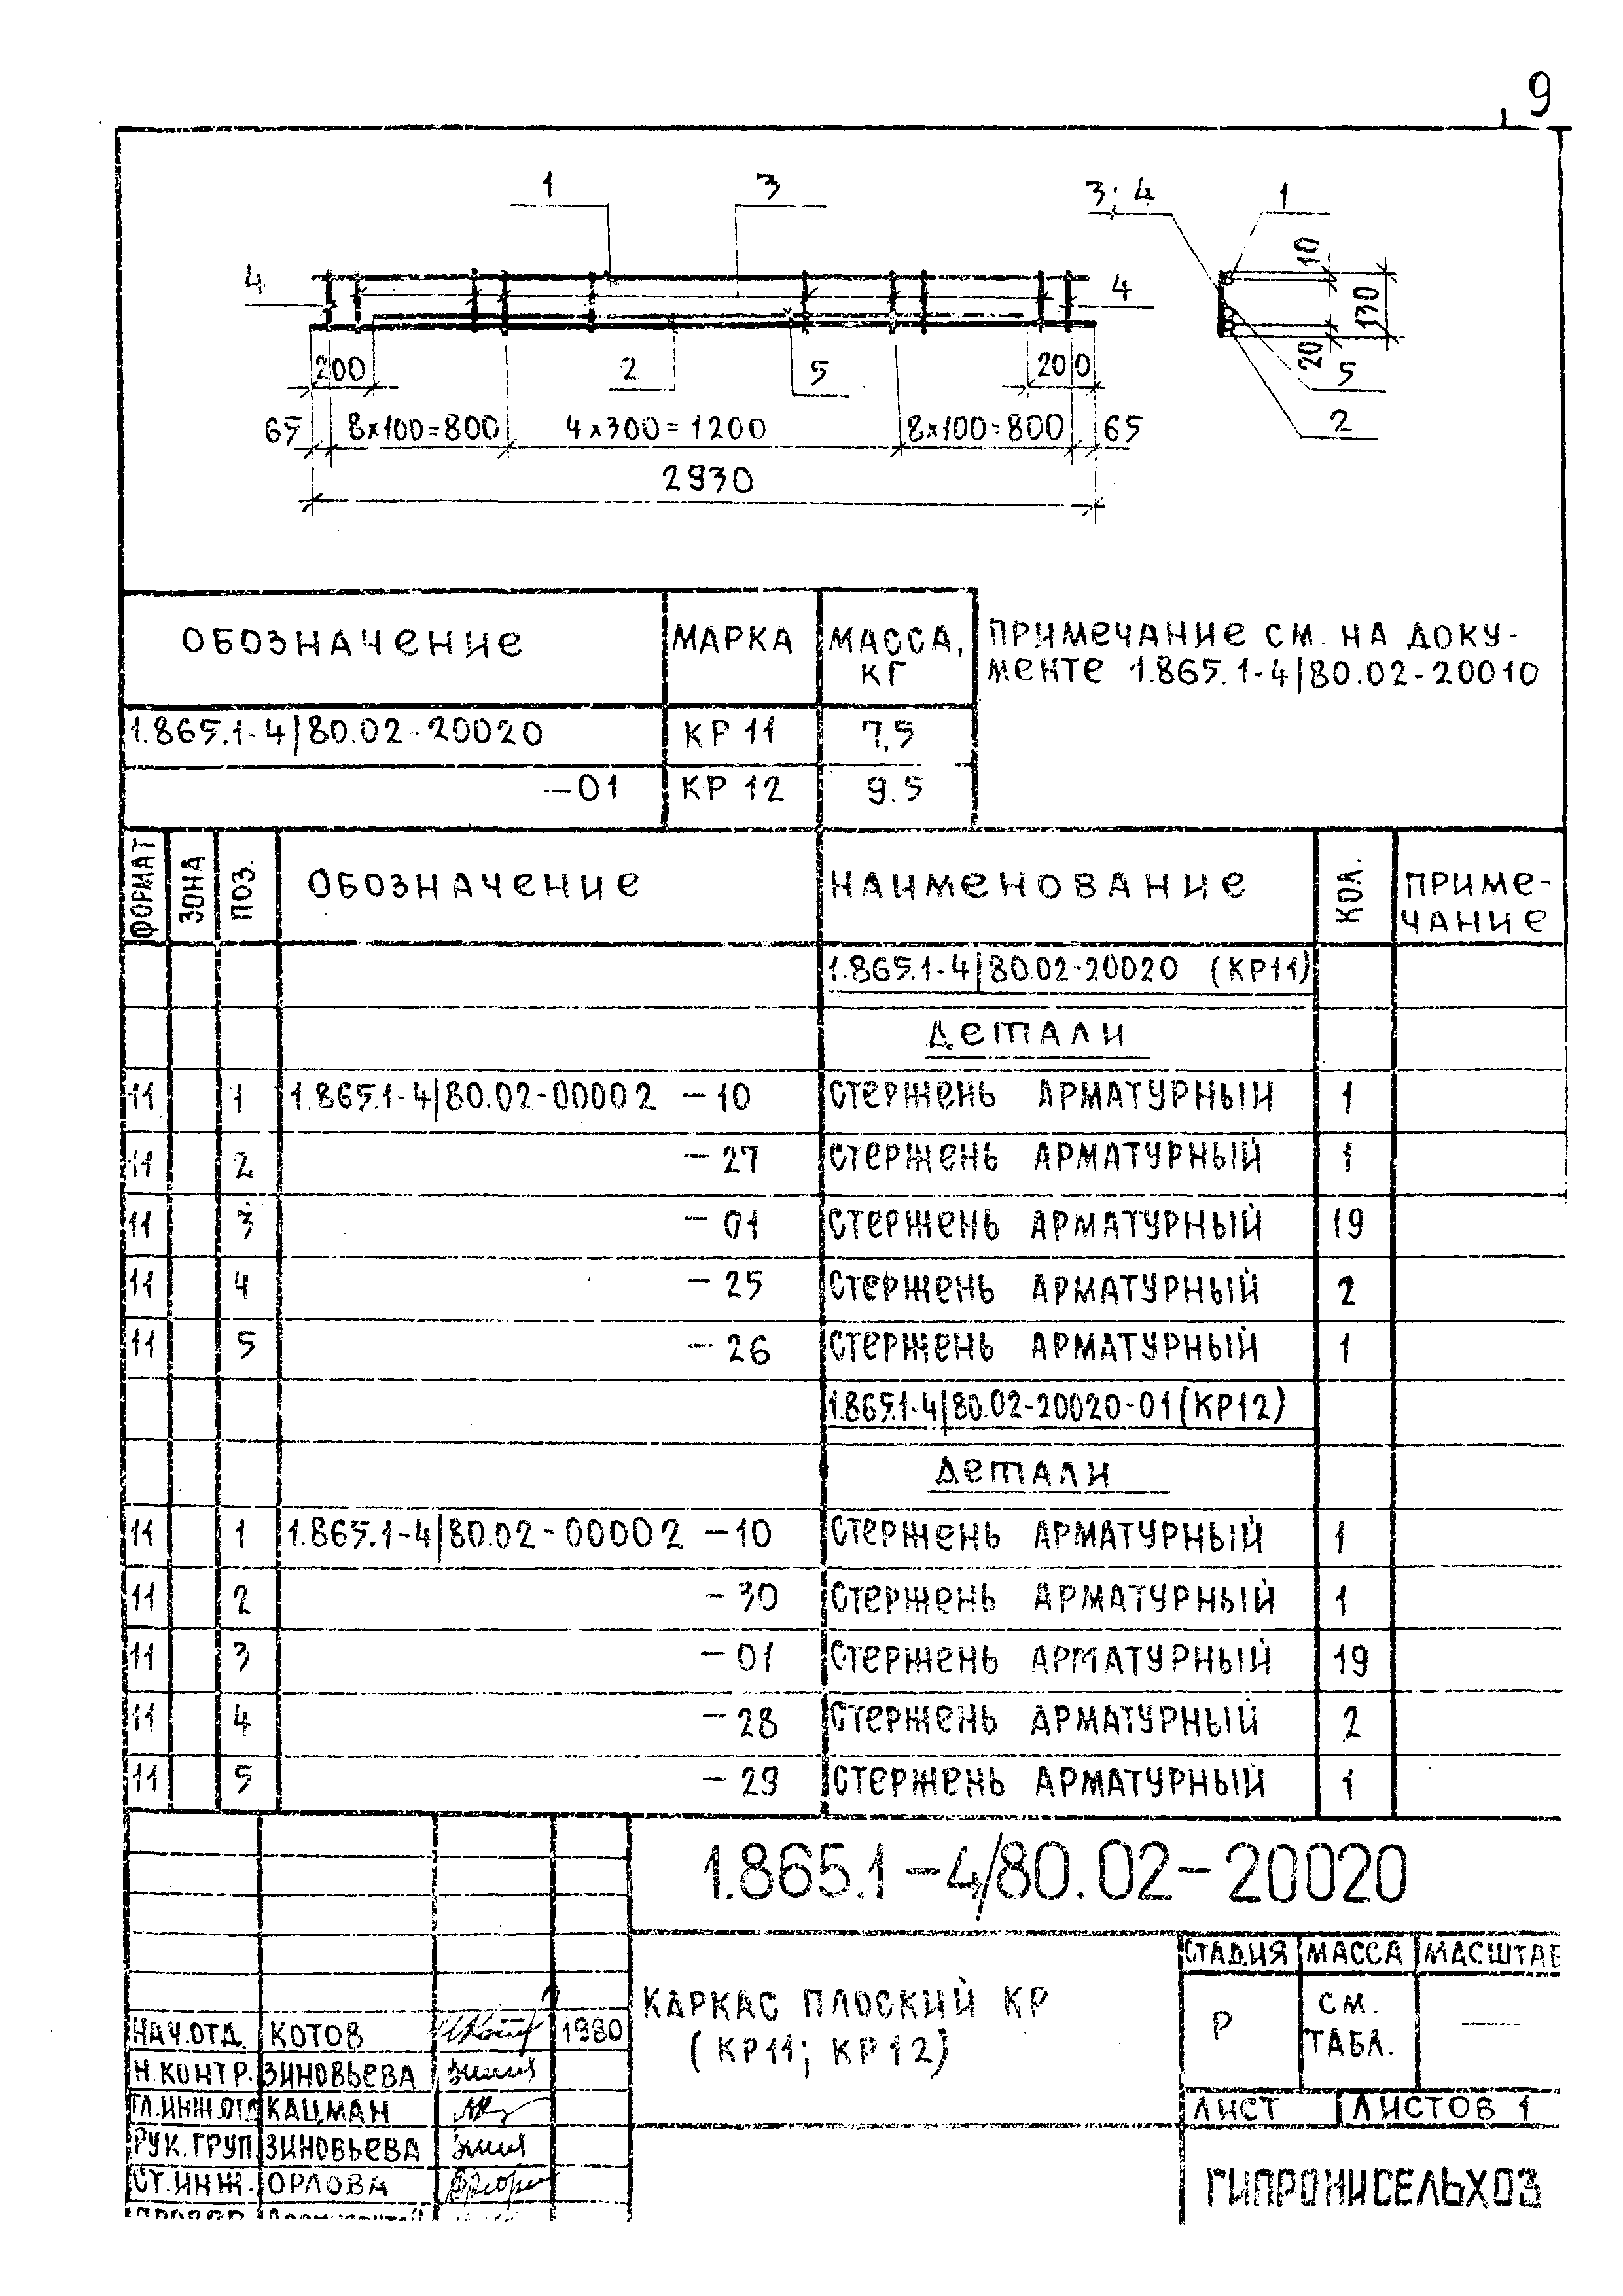 9
1 3 3; 4 1
4 4
10 130 20
200 2 5 200 5
65 8×100=800 4×300=1200 8×100=800 65 2
2930
ОБОЗНАЧЕНИЕ МАРКА МАССА, КГ
1.865.1-4/80.02-20020 КР 11 7,5
-01 КР 12 9.5
ПРИМЕЧАНИЕ СМ. НА ДОКУ-
МЕНТЕ 1.865.1-4/80.02-20010
ФОРМАТ ЗОНА ПОЗ. ОБОЗНАЧЕНИЕ НАИМЕНОВАНИЕ КОЛ. ПРИМЕ-
ЧАНИЕ
1.865.1-4/80.02-20020 (КР11)
ДЕТАЛИ
11 1 1.865.1-4/80.02-00002 -10 СТЕРЖЕНЬ АРМАТУРНЫЙ 1
11 2 -27 СТЕРЖЕНЬ АРМАТУРНЫЙ 1
11 3 -01 СТЕРЖЕНЬ АРМАТУРНЫЙ 19
11 4 -25 СТЕРЖЕНЬ АРМАТУРНЫЙ 2
11 5 -26 СТЕРЖЕНЬ АРМАТУРНЫЙ 1
1.865.1-4/80.02-20020-01 (КР12)
ДЕТАЛИ
11 1 1.865.1-4/80.02-00002 -10 СТЕРЖЕНЬ АРМАТУРНЫЙ 1
11 2 -30 СТЕРЖЕНЬ АРМАТУРНЫЙ 1
11 3 -01 СТЕРЖЕНЬ АРМАТУРНЫЙ 19
11 4 -28 СТЕРЖЕНЬ АРМАТУРНЫЙ 2
11 5 -29 СТЕРЖЕНЬ АРМАТУРНЫЙ 1
1.865.1-4/80.02-20020
КАРКАС ПЛОСКИЙ КР
(КР11; КР12)
СТАДИЯ МАССА МАСШТАБ
Р СМ. ТАБЛ. —
ЛИСТ ЛИСТОВ 1
ГИПРОНИСЕЛЬХОЗ
НАЧ.ОТД. КОТОВ 1980
Н.КОНТР. ЗИНОВЬЕВА
ГЛ.ИНЖ.ОТД КАЦМАН
РУК.ГРУП. ЗИНОВЬЕВА
СТ.ИНЖ. ОРЛОВА